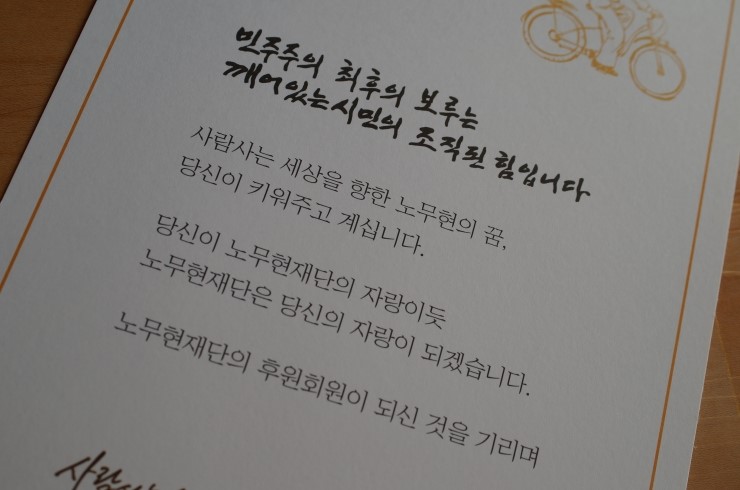 민주주의 최후의 보루는
깨어있는 시민의 조직된 힘입니다
사람사는 세상을 향한 노무현의 꿈,
당신이 키워주고 계십니다.
당신이 노무현재단의 자랑이듯
노무현재단은 당신의 자랑이 되겠습니다.
노무현재단의 후원회원이 되신 것을 기리며
사람